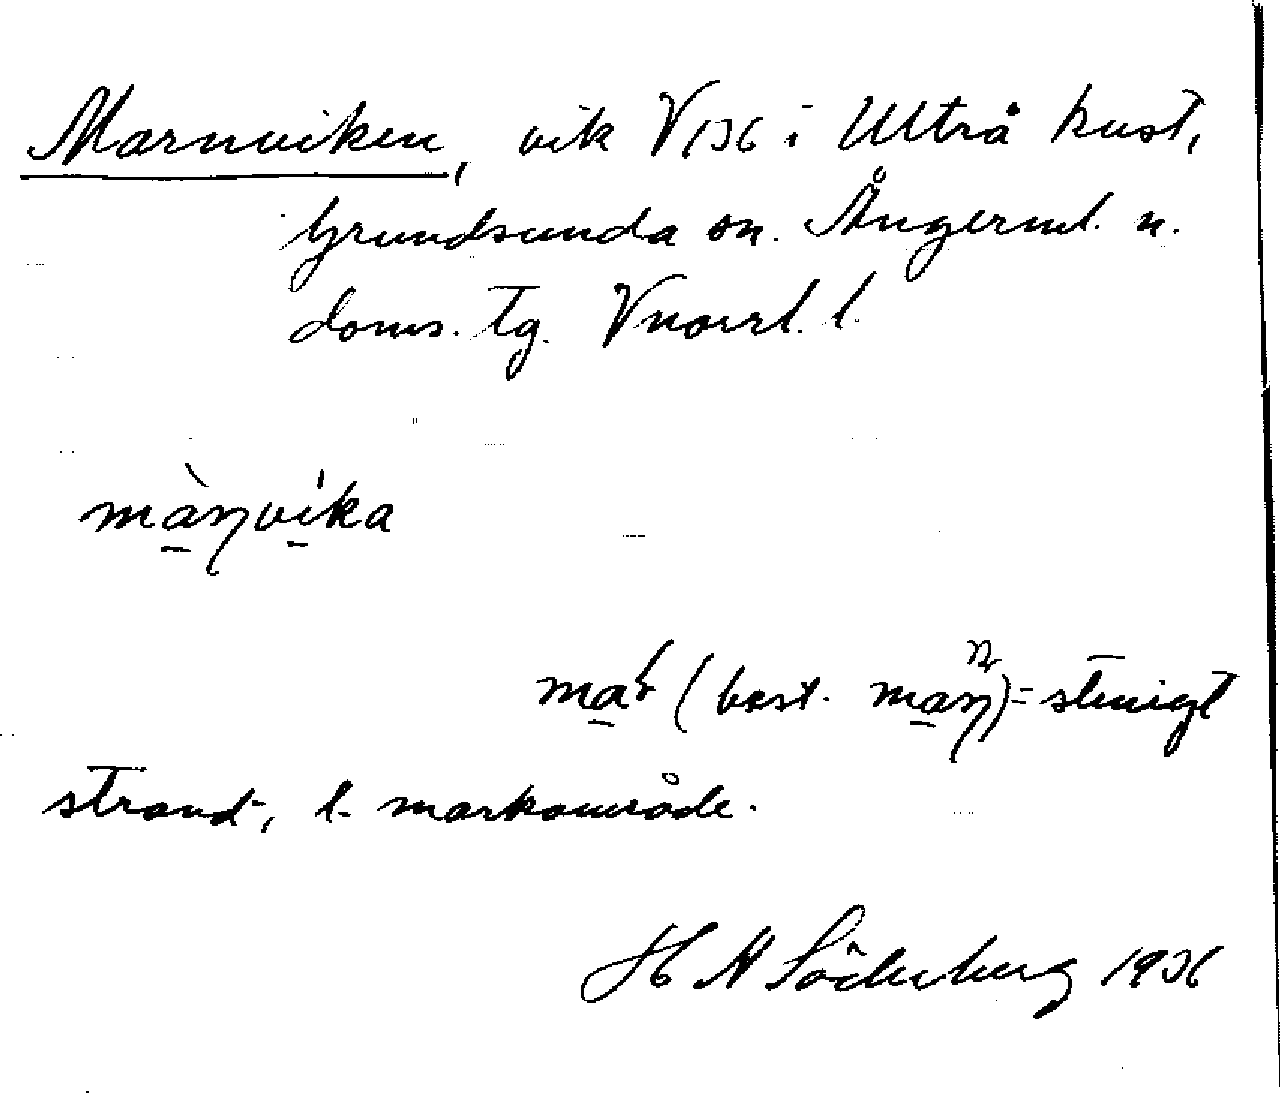 Marnviken, vik V136 i Ultrå kust,
Grundsunda sn. Ångerml. n.
doms. tg. Vnorrl. l.
màṇvi̍ka
maɽ (best. maṇ)= stenigt
strand-, l. markområde.
H N Söderberg 1936